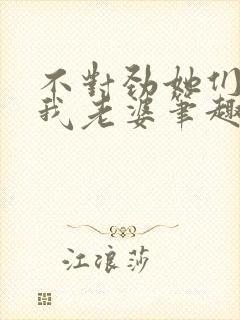 不對勁她们
我老婆筆趣
江浪莎